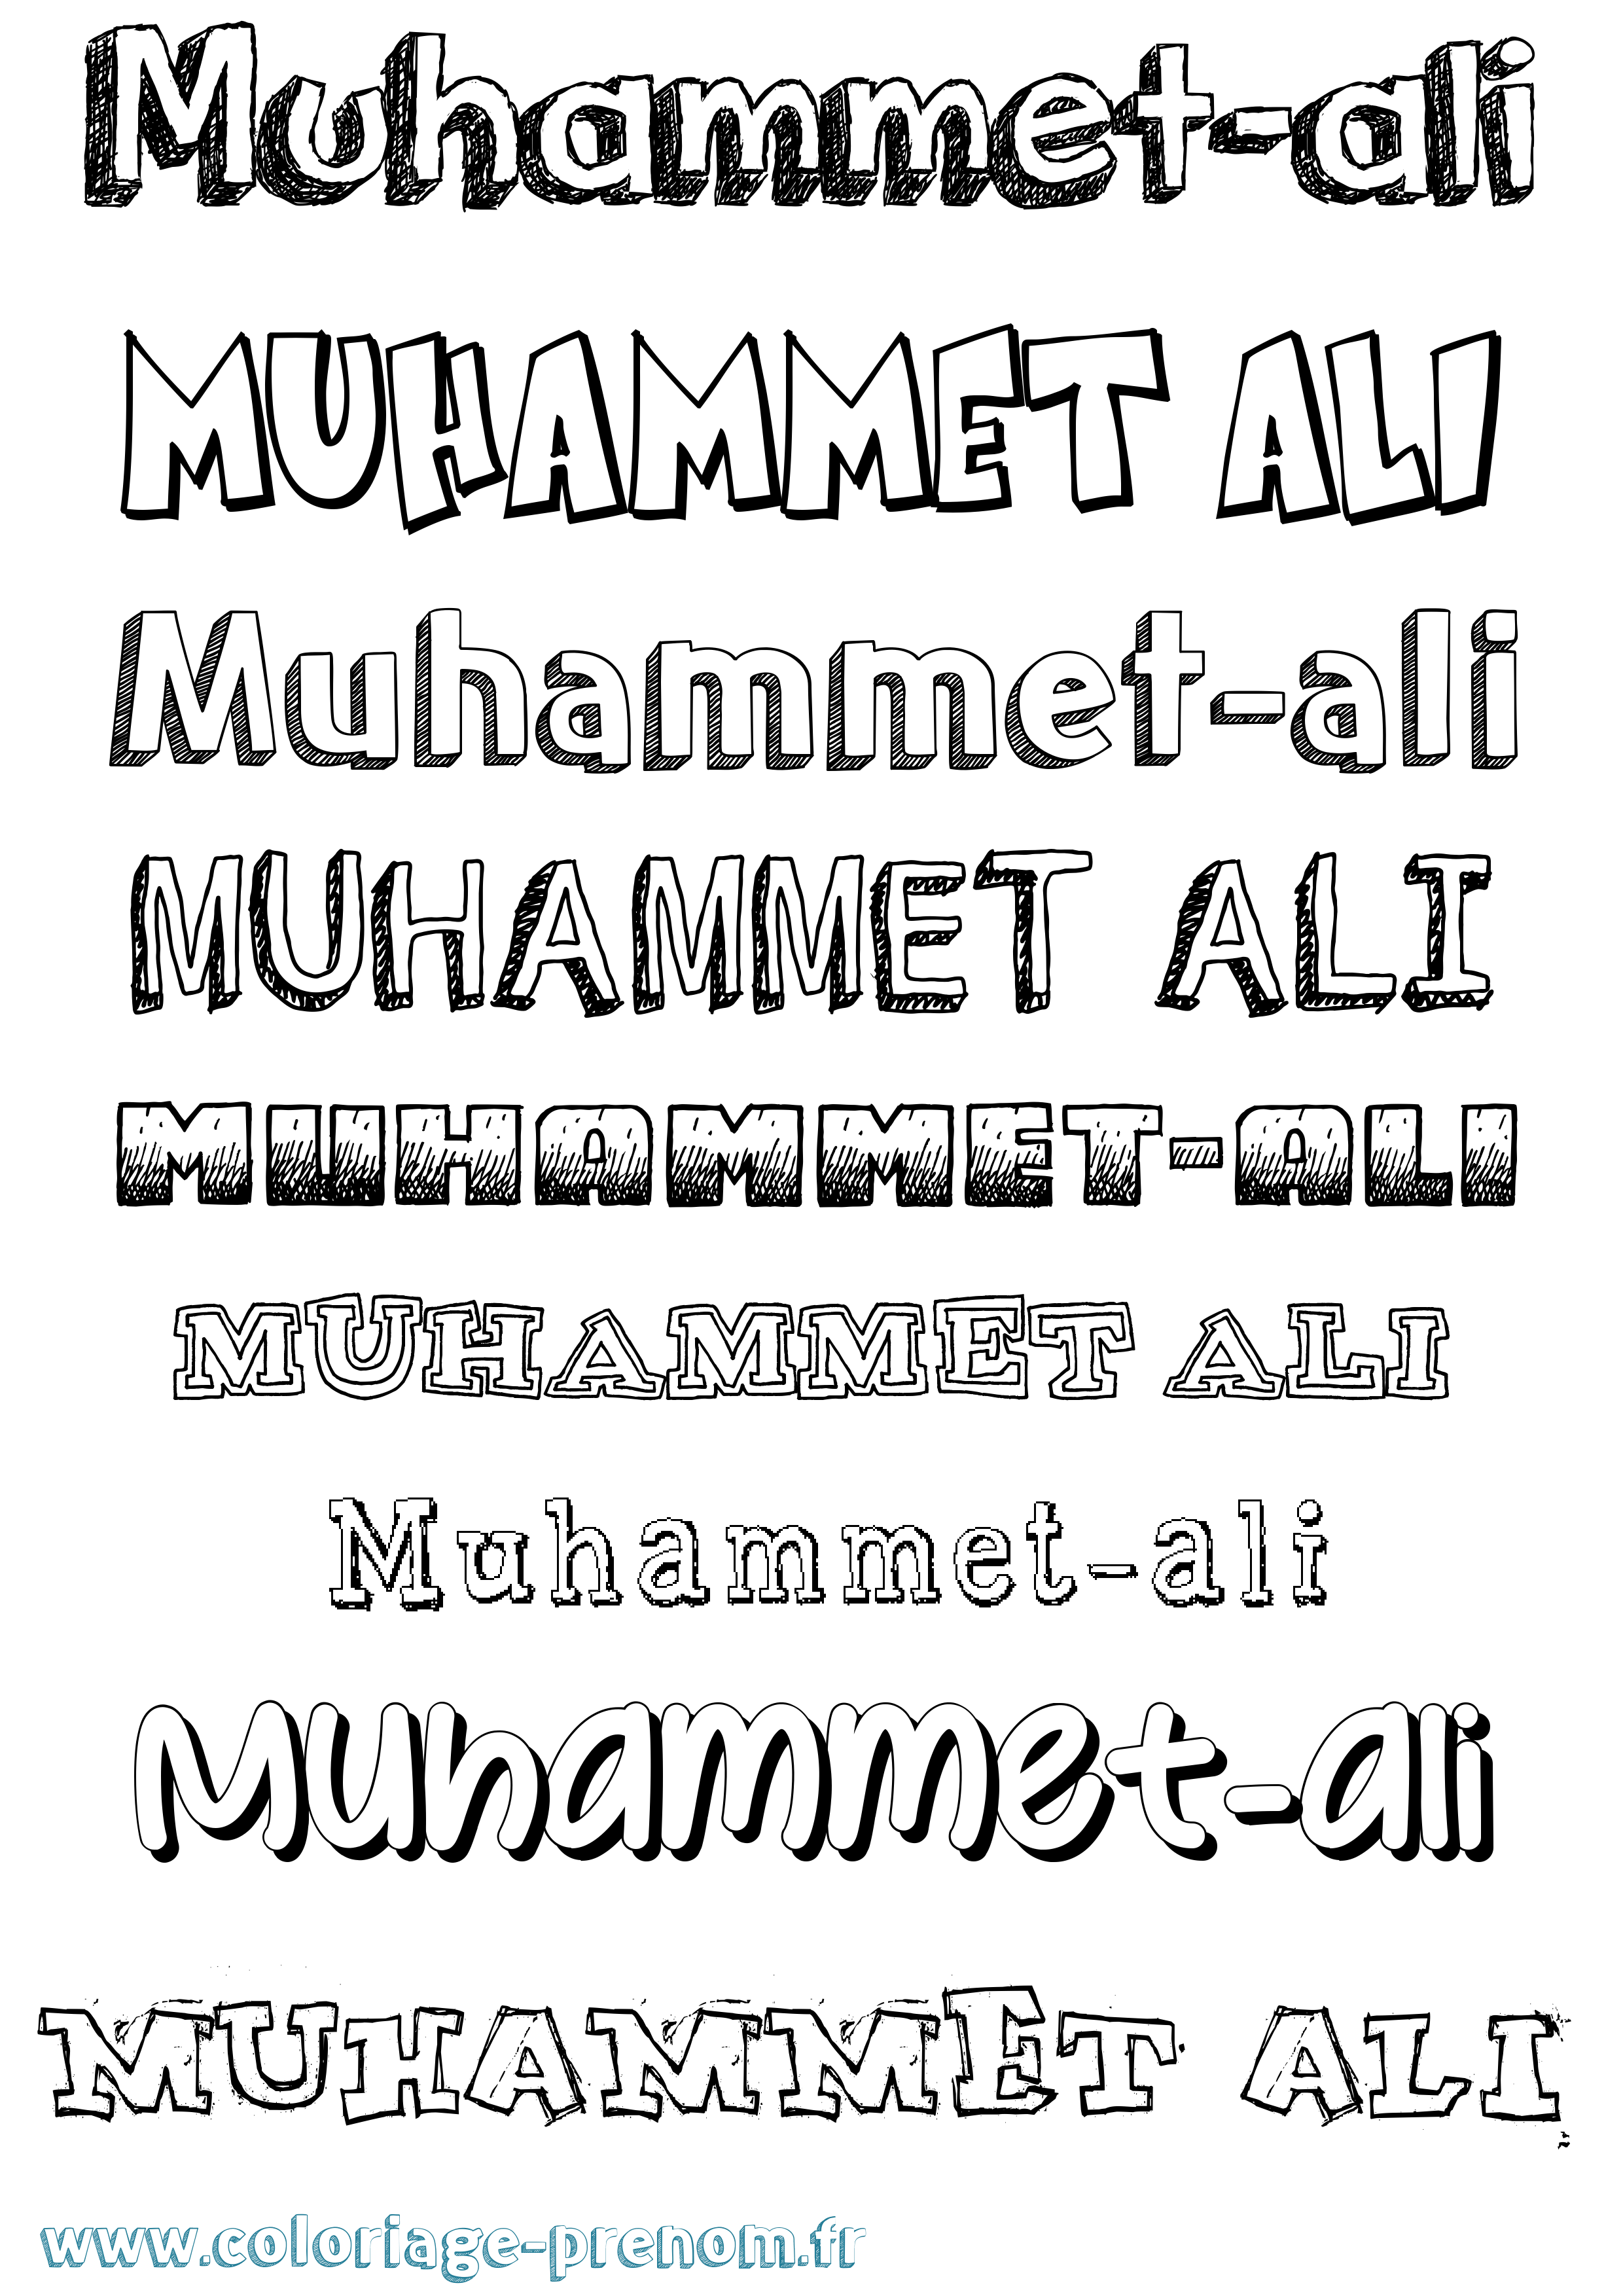 Muhammet-ali
MUHAMMET ALI
Muhammet-ali
MUHAMMET ALI
MUHAMMET-ALI
MUHAMMET ALI
Muhammet-ali
Muhammet-ali
MUHAMMET ALI
www.coloriage-prenom.fr